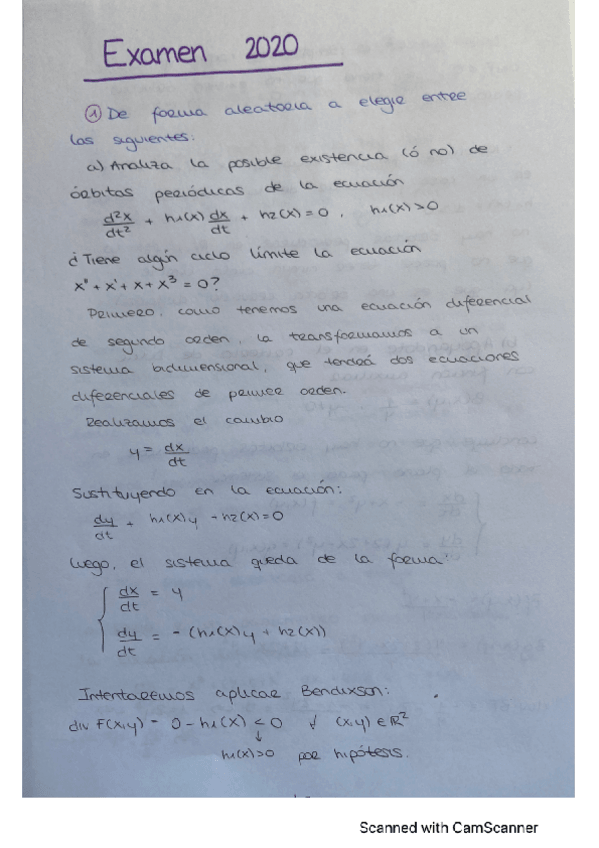 Examen 2020
① De forma aleatoria a elegir entre
las siguientes:
a) Analiza la posible existencia (ó no) de
órbitas periódicas de la ecuación
d²x/dt² + h₁(x) dx/dt + h₂(x) = 0 , h₁(x) > 0
¿Tiene algún ciclo límite la ecuación
x'' + x' + x + x³ = 0?
Primero, como tenemos una ecuación diferencial
de segundo orden, la transformamos a un
sistema bidimensional, que tendrá dos ecuaciones
diferenciales de primer orden.
Realizamos el cambio
y = dx/dt
Sustituyendo en la ecuación:
dy/dt + h₁(x)y + h₂(x) = 0
Luego, el sistema queda de la forma:
dx/dt = y
dy/dt = - (h₁(x)y + h₂(x))
Intentaremos aplicar Bendixson:
div F(x,y) = 0 - h₁(x) < 0 ∀ (x,y) ∈ ℝ²
↓
h₁(x)>0 por hipótesis.
Scanned with CamScanner